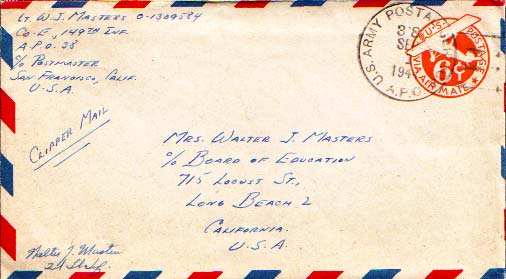 Lt. W. J. Masters O-1309584
Co-E, 149th Inf.
A.P.O. 38
c/o Postmaster
San Francisco, Calif.
U.S.A.
U.S. ARMY POSTAL
38
SE
194
A.P.O.
U.S. POSTAGE
6¢
VIA AIR MAIL
Clipper Mail
Mrs. Walter J. Masters
c/o Board of Education
715 Locust St.,
Long Beach 2
California.
U.S.A.
Walter J. Masters
2d Lt. Inf.